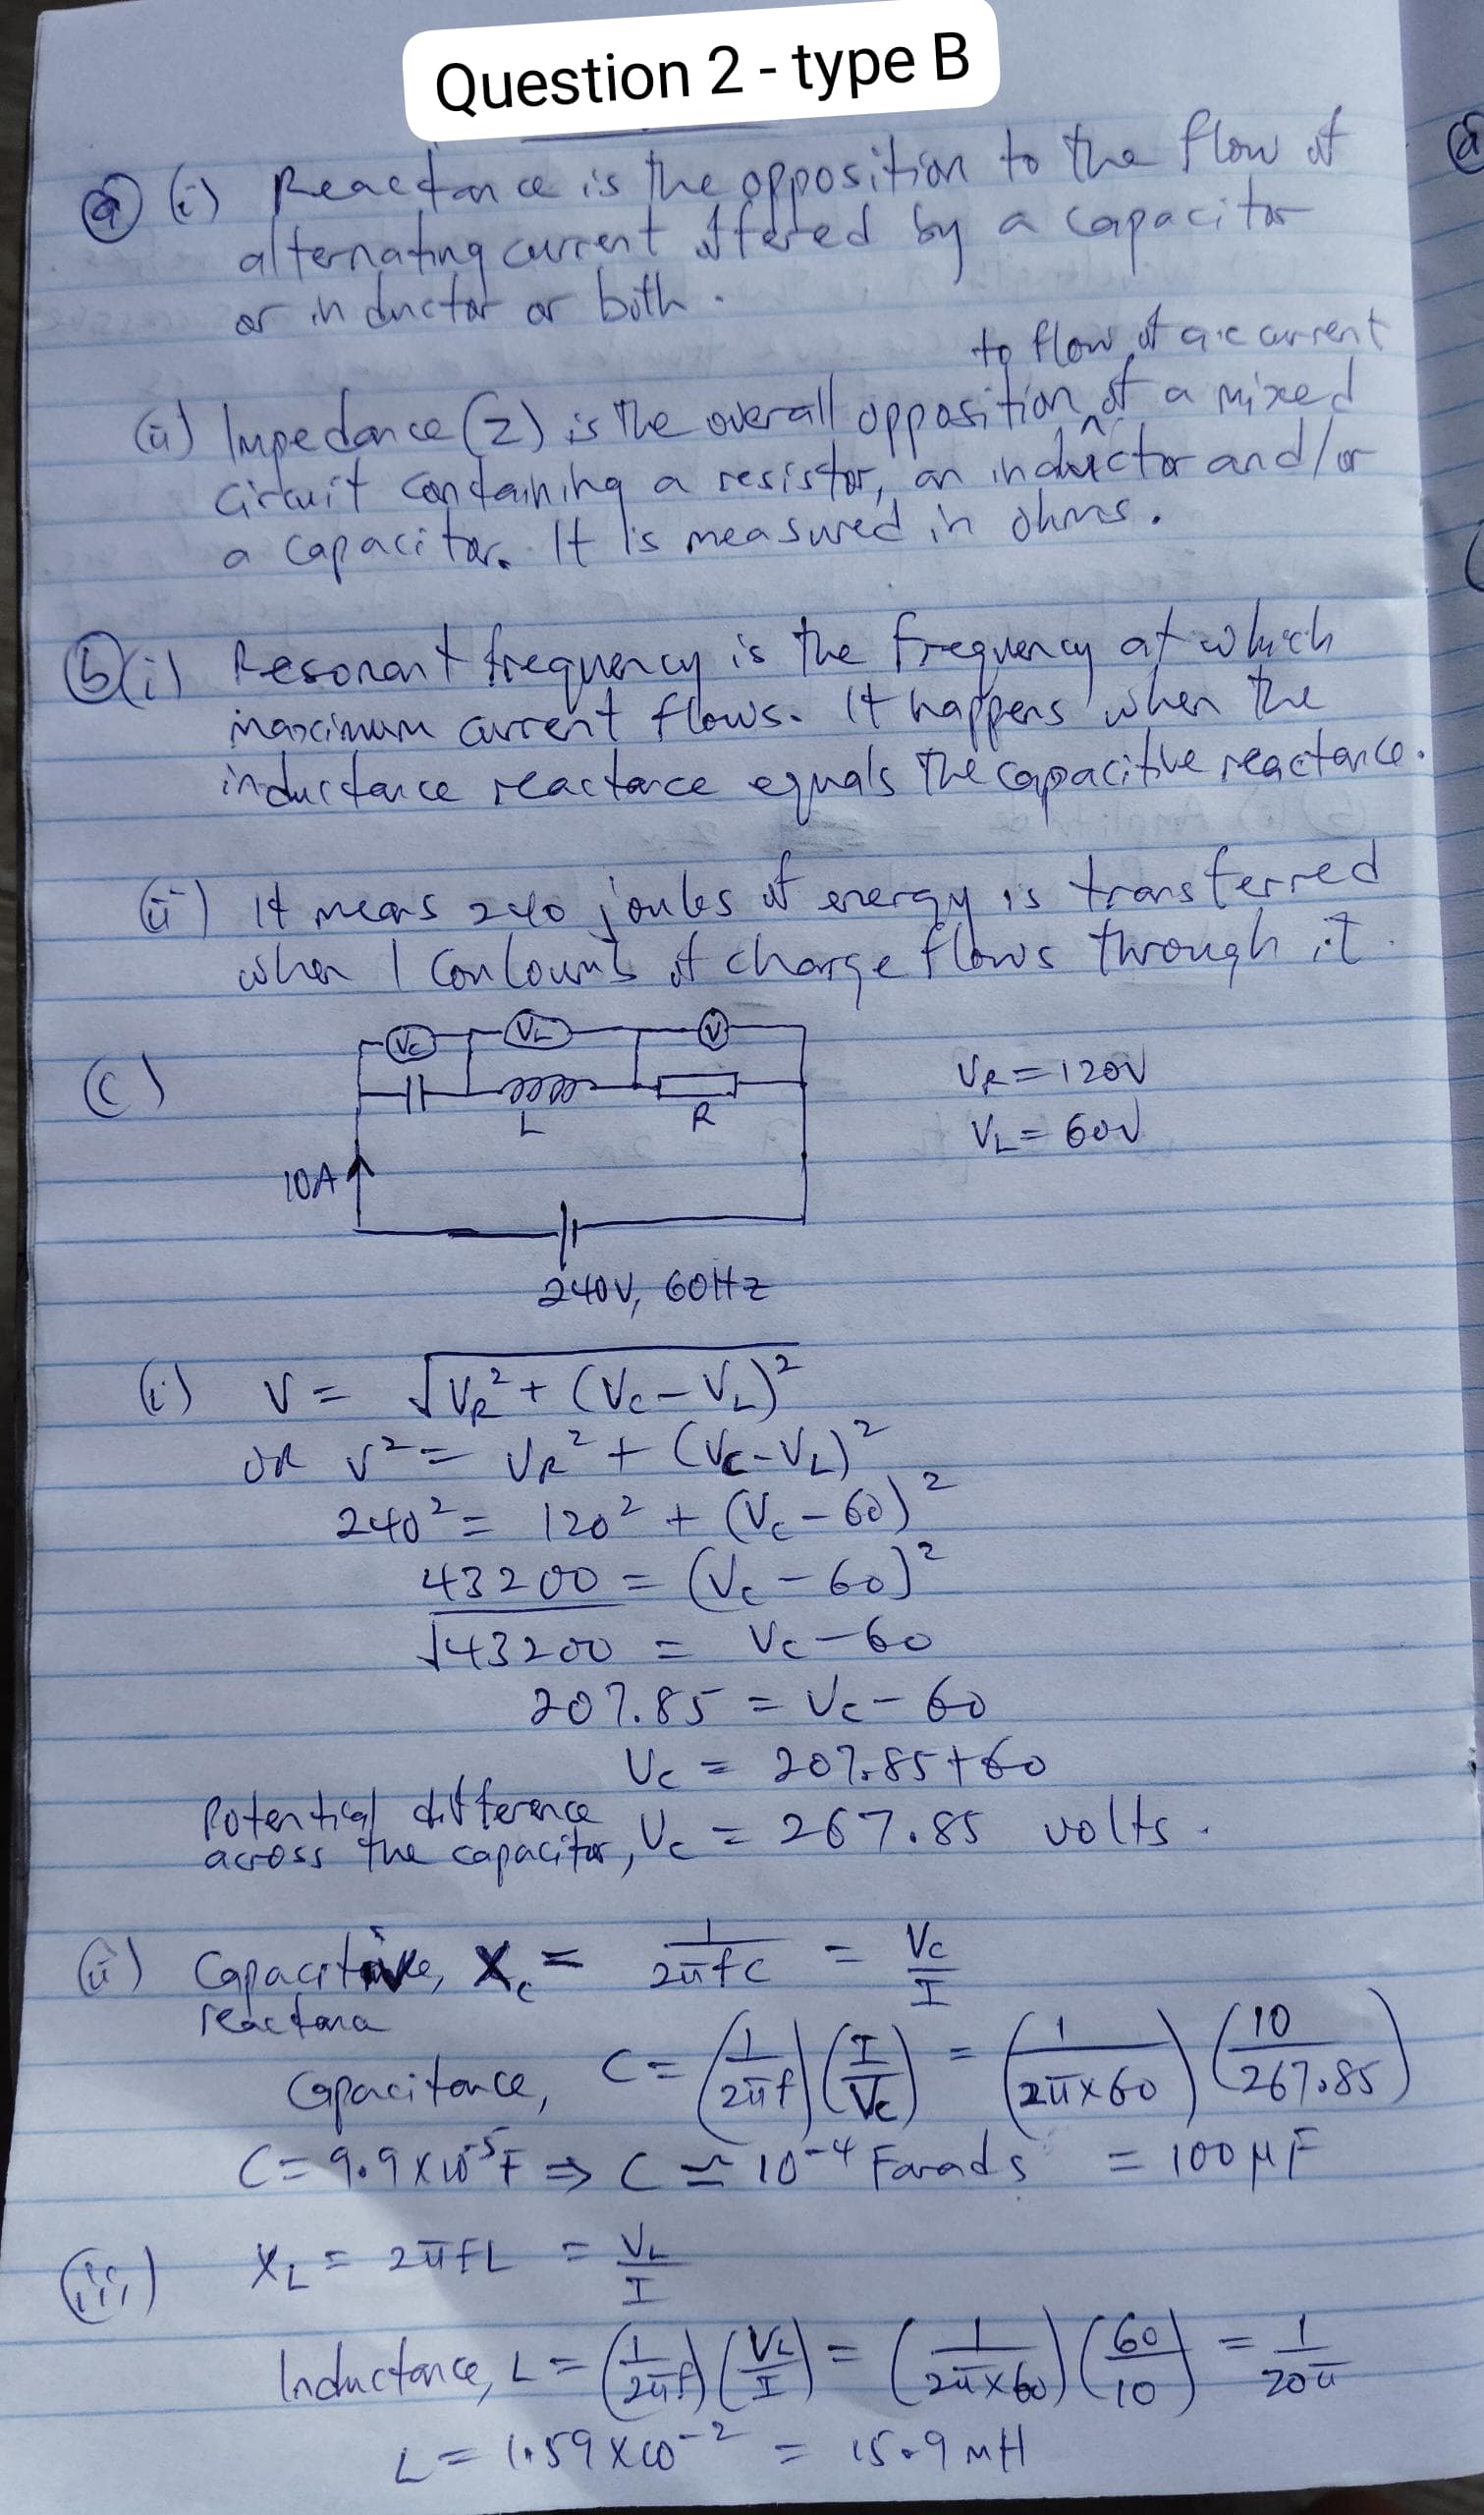 Question 2 - type B
(a) (i) Reactance is the opposition to the flow of
alternating current offered by a capacitor
or inductor or both.
to flow of a.c current
(ii) Impedance (Z) is the overall opposition of a mixed
circuit containing a resistor, an inductor and/or
a capacitor. It is measured in ohms.
(b) (i) Resonant frequency is the frequency at which
maximum current flows. It happens when the
inductance reactance equals the capacitive reactance.
(ii) It means 240 joules of energy is transferred
when 1 Couloumb of charge flows through it.
(c)
Vc VL V
L R
VR = 120V
VL = 60V
10A
240V, 60Hz
(i) V = √VR² + (Vc - VL)²
OR V² = VR² + (Vc - VL)²
240² = 120² + (Vc - 60)²
43200 = (Vc - 60)²
√43200 = Vc - 60
207.85 = Vc - 60
Vc = 207.85 + 60
Potential difference
across the capacitor, Vc = 267.85 volts.
(ii) Capacitive, Xc = 1/2πfC = Vc/I
reactance
Capacitance, C = (1/2πf) (I/Vc) = (1/2π×60) (10/267.85)
C = 9.9 × 10⁻⁵F ⇒ C ≃ 10⁻⁴ Farads = 100 μF
(iii) XL = 2πfL = VL/I
Inductance, L = (1/2πf) (VL/I) = (1/2π×60) (60/10) = 1/20π
L = 1.59 × 10⁻² = 15.9 mH